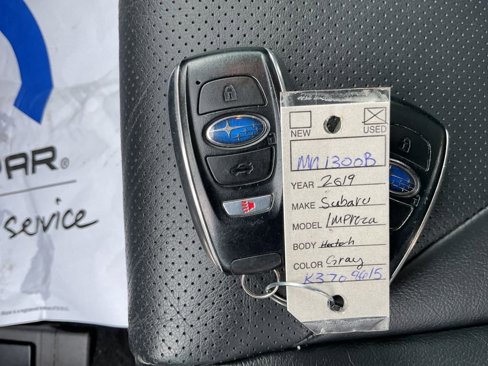 DAR®
service
NEW
USED
MM1300B
YEAR 2019
MAKE Subaru
MODEL Impreza
BODY Hatch
COLOR Gray